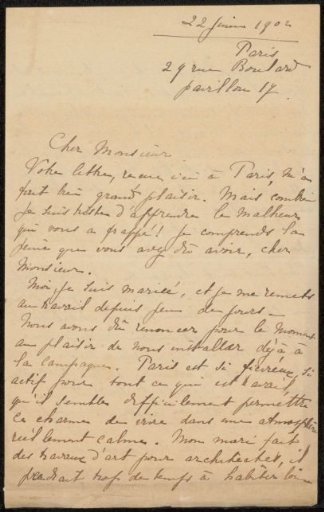 22 juin 1902
Paris
29 rue Boulard
pavillon 17.
Cher Monsieur
Votre lettre, reçue ici à Paris, m'a
fait bien grand plaisir. Mais combien
je suis triste d'apprendre le malheur
qui vous a frappé! Je comprends la
peine que vous avez dû avoir, cher
Monsieur.
Moi, je suis mariée, et je me remets
au travail depuis peu de jours.
Nous avons dû renoncer pour le moment
au plaisir de nous installer déjà à
la campagne. Paris est si fiévreux, si
actif pour tout ce qui est travail
qu'il semble difficilement permettre
ce charme de vivre dans une atmosphère
réellement calme. Mon mari fait
des travaux d'art pour architectes, il
perdrait trop de temps à habiter loin